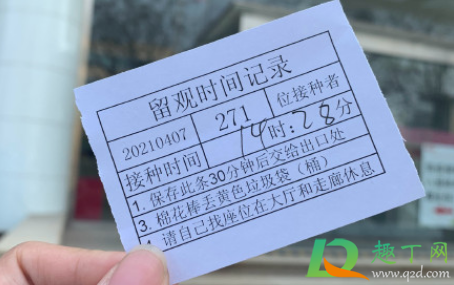 留观时间记录
20210407 271 位接种者
接种时间 14时:28分
1. 保存此条30分钟后交给出口处
3. 棉花棒丢黄色垃圾袋（桶）
请自己找座位在大厅和走廊休息
趣丁网
www.q2d.com